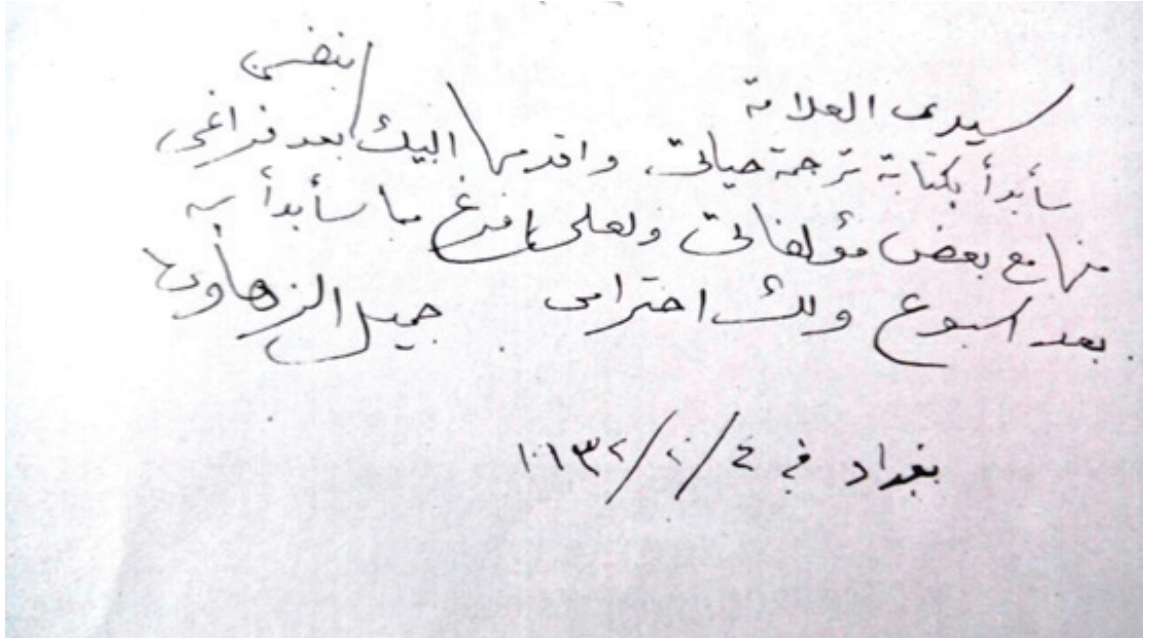 سيدى العلامة
سأبدأ بكتابة ترجمة حياتى واقدمها اليك بنفسى بعد فراغى
منها مع بعض مؤلفاتى ولعلى افرغ مما سأبدأ به
بعد اسبوع ولك احترامى جميل الزهاوى
بغداد فى ٤